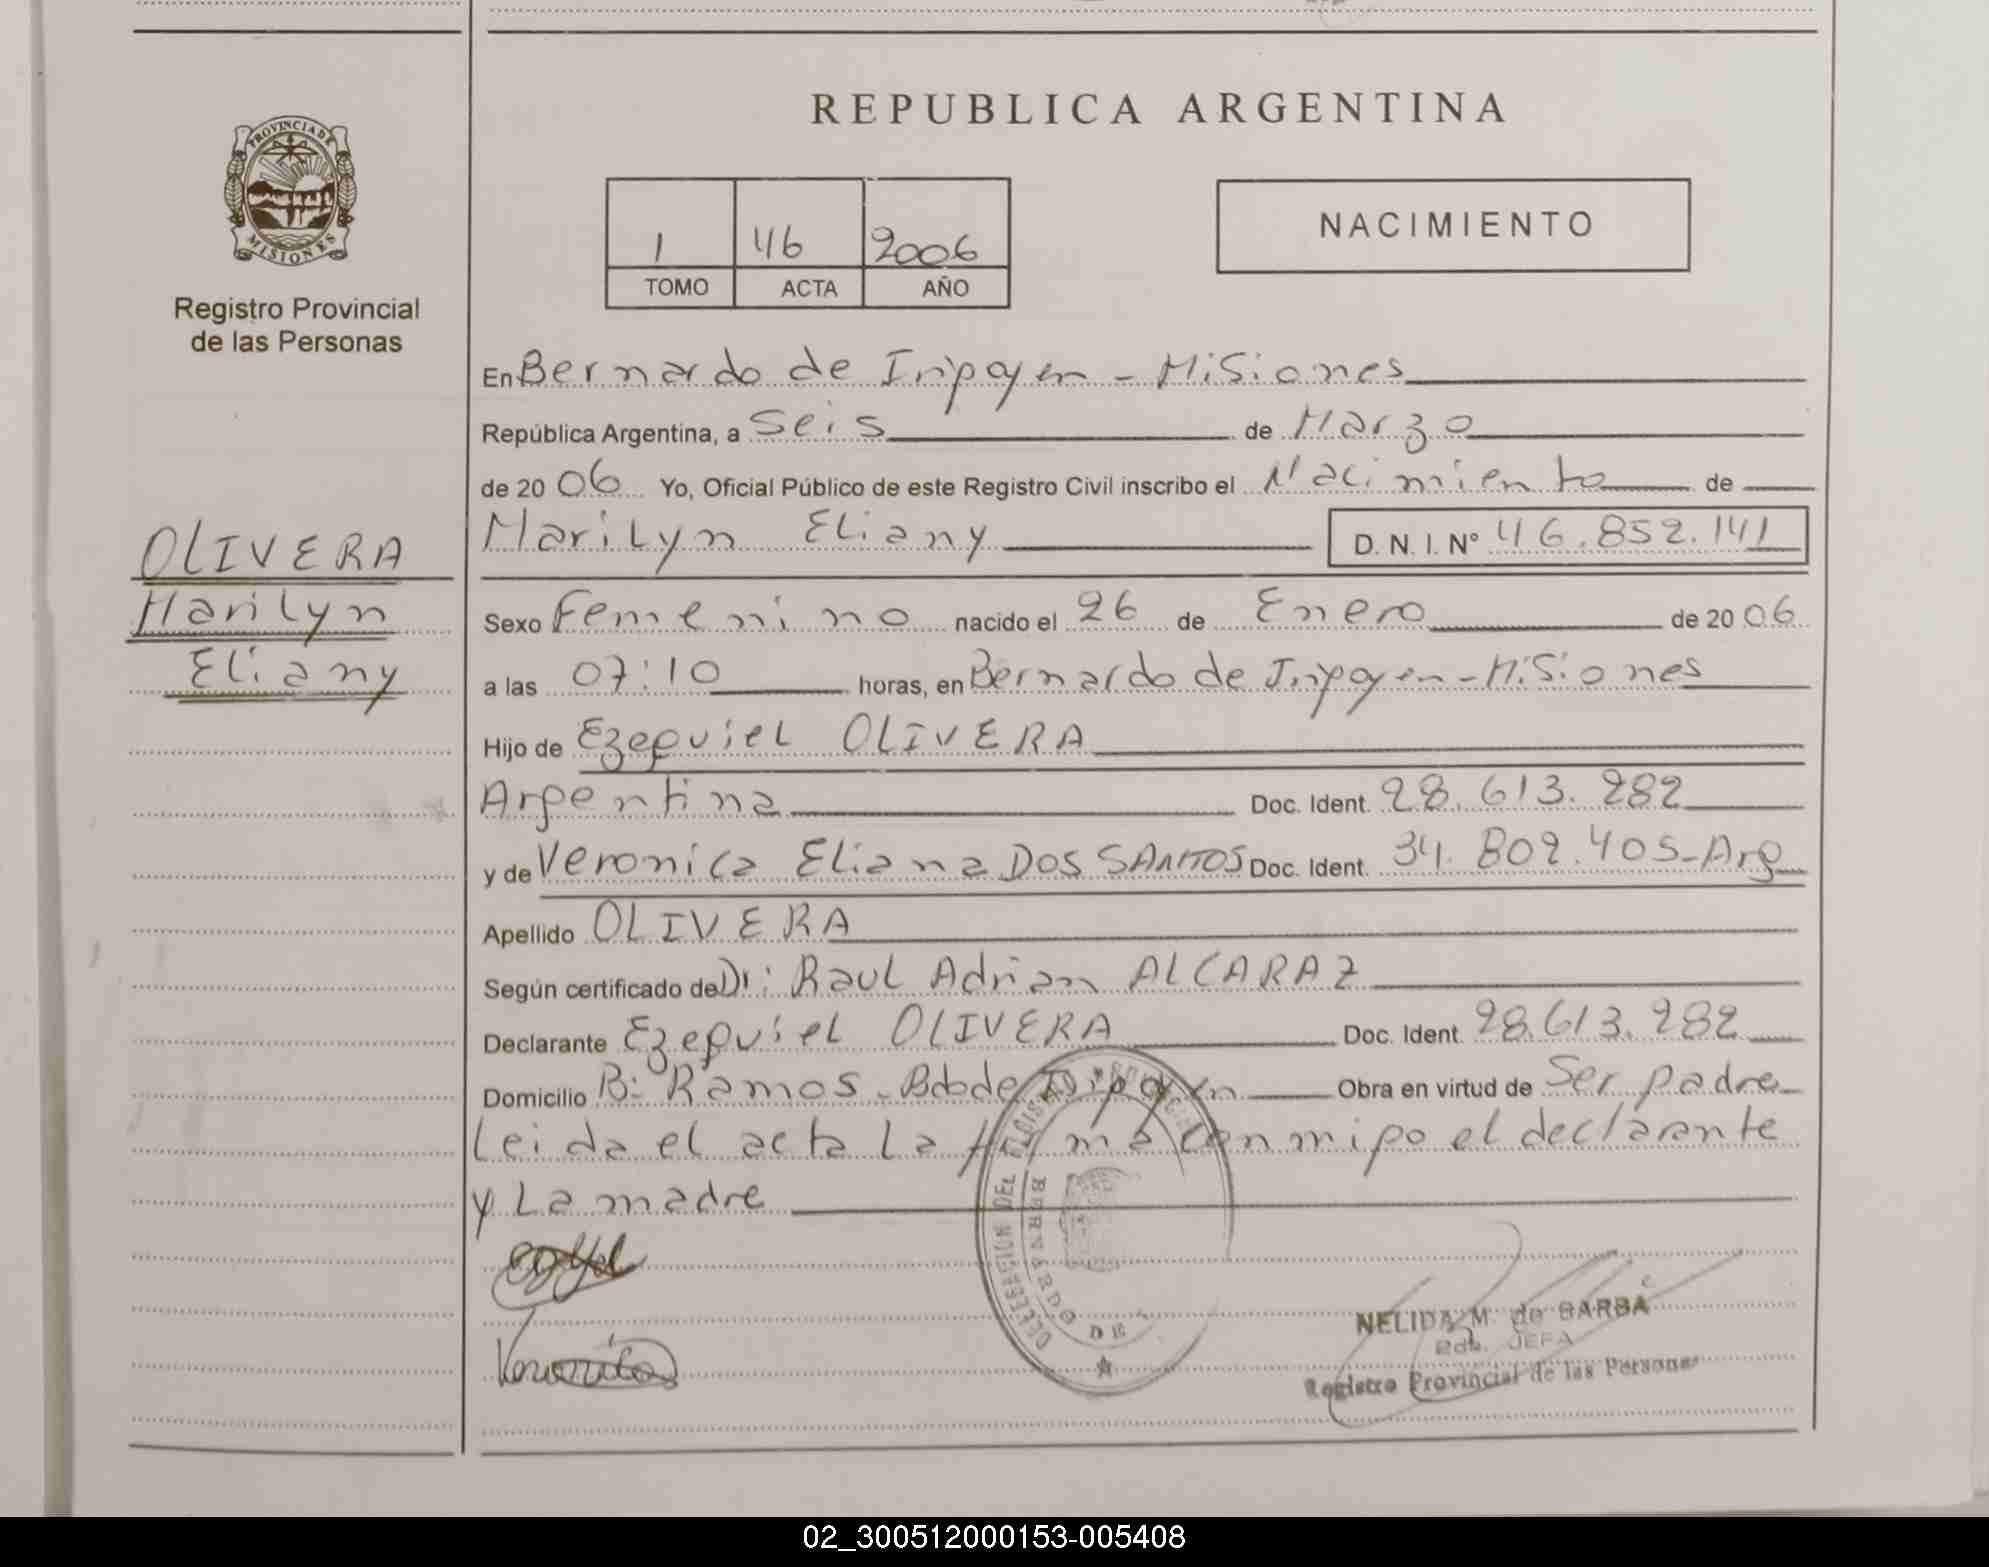 REPUBLICA ARGENTINA
PROVINCIA DE
MISIONES
Registro Provincial
de las Personas
1 46 2006
TOMO ACTA AÑO
NACIMIENTO
En Bernardo de Irigoyen - Misiones
República Argentina, a Seis de Marzo
de 20 06 Yo, Oficial Público de este Registro Civil inscribo el Nacimiento de
OLIVERA
Marilyn
Eliany
Marilyn Eliany D. N. I. Nº 46.852.141
Sexo Femenino nacido el 26 de Enero de 20 06
a las 07:10 horas, en Bernardo de Irigoyen - Misiones
Hijo de Ezequiel OLIVERA
Argentina Doc. Ident. 28.613.282
y de Veronica Eliana DOS SANTOS Doc. Ident. 34.802.405-Arg
Apellido OLIVERA
Según certificado de Dr: Raul Adrian ALCARAZ
Declarante Ezequiel OLIVERA Doc. Ident. 28.613.282
Domicilio B: Ramos - Bdo de Irigoyen Obra en virtud de Ser padre
Leida el acta La firma conmigo el declarante
y La madre
BERNARDO DE
NELIDA M. de BARBA
JEFA
Registro Provincial de las Personas
02_300512000153-005408